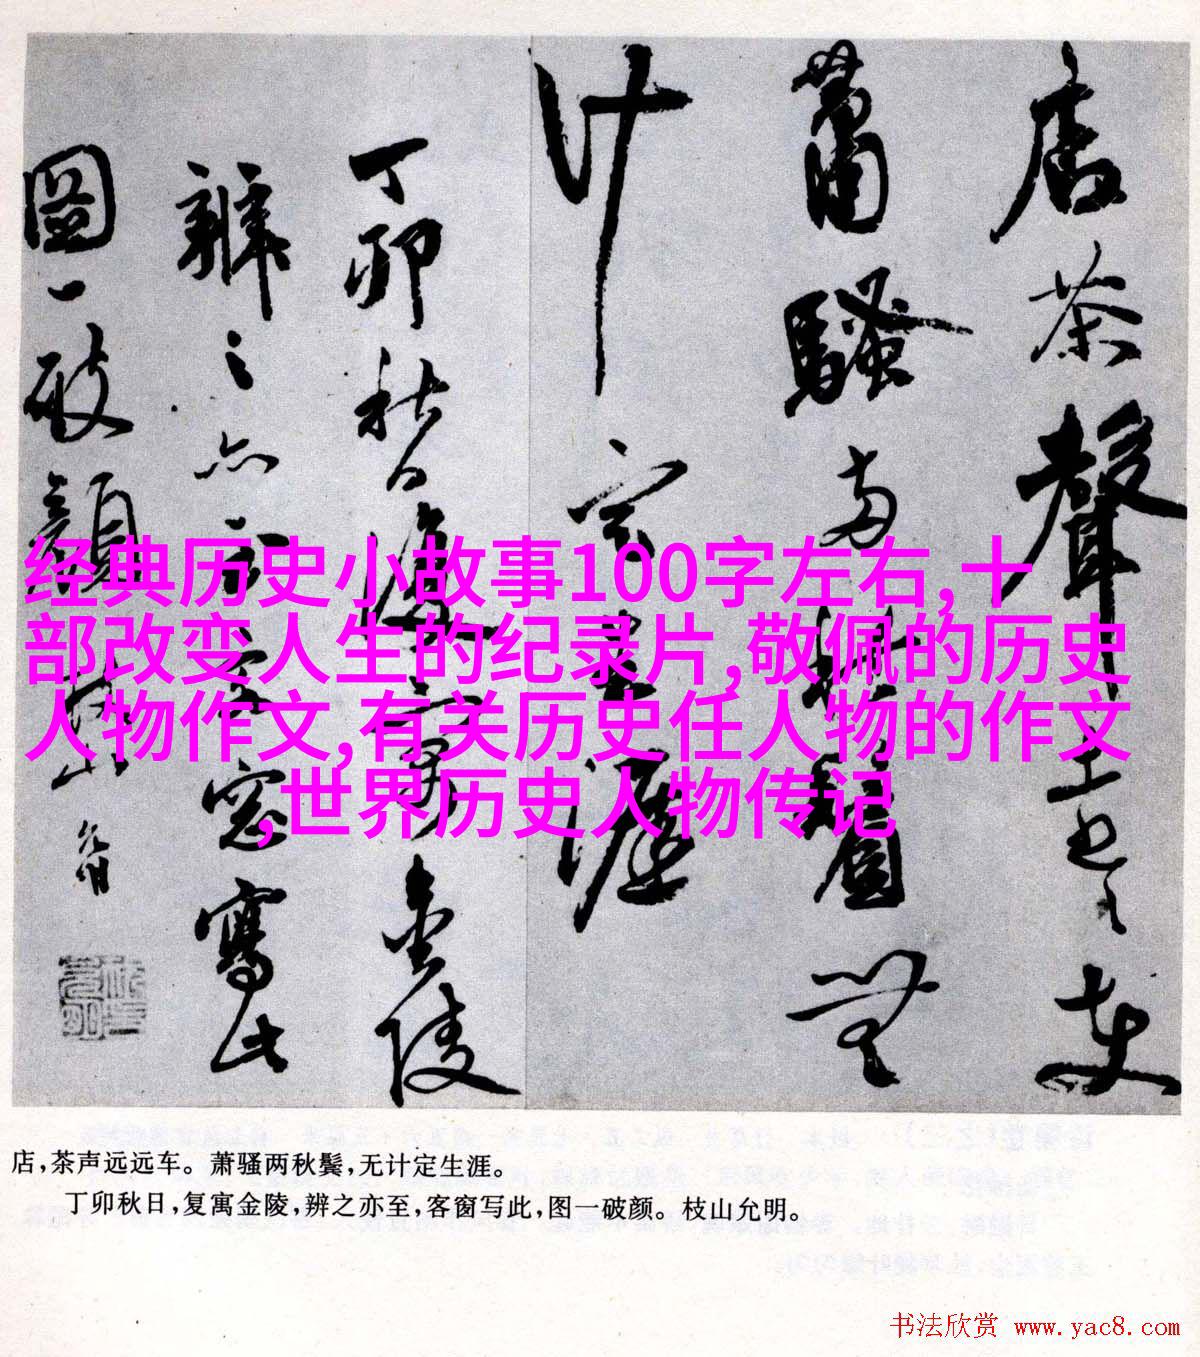 店茶聲遠遠車
蕭騷兩秋鬢無
計定生涯
丁卯秋日復寓金陵
辨之亦至客窓寫此
圖一破顏枝山允明
经典历史小故事100字左右,十
部改变人生的纪录片,敬佩的历史
人物作文,有关历史任人物的作文
,世界历史人物传记
店,茶声远远车。萧骚两秋鬓,无计定生涯。
丁卯秋日,复寓金陵,辨之亦至,客窗写此,图一破颜。枝山允明。
书法欣赏 www.yac8.com